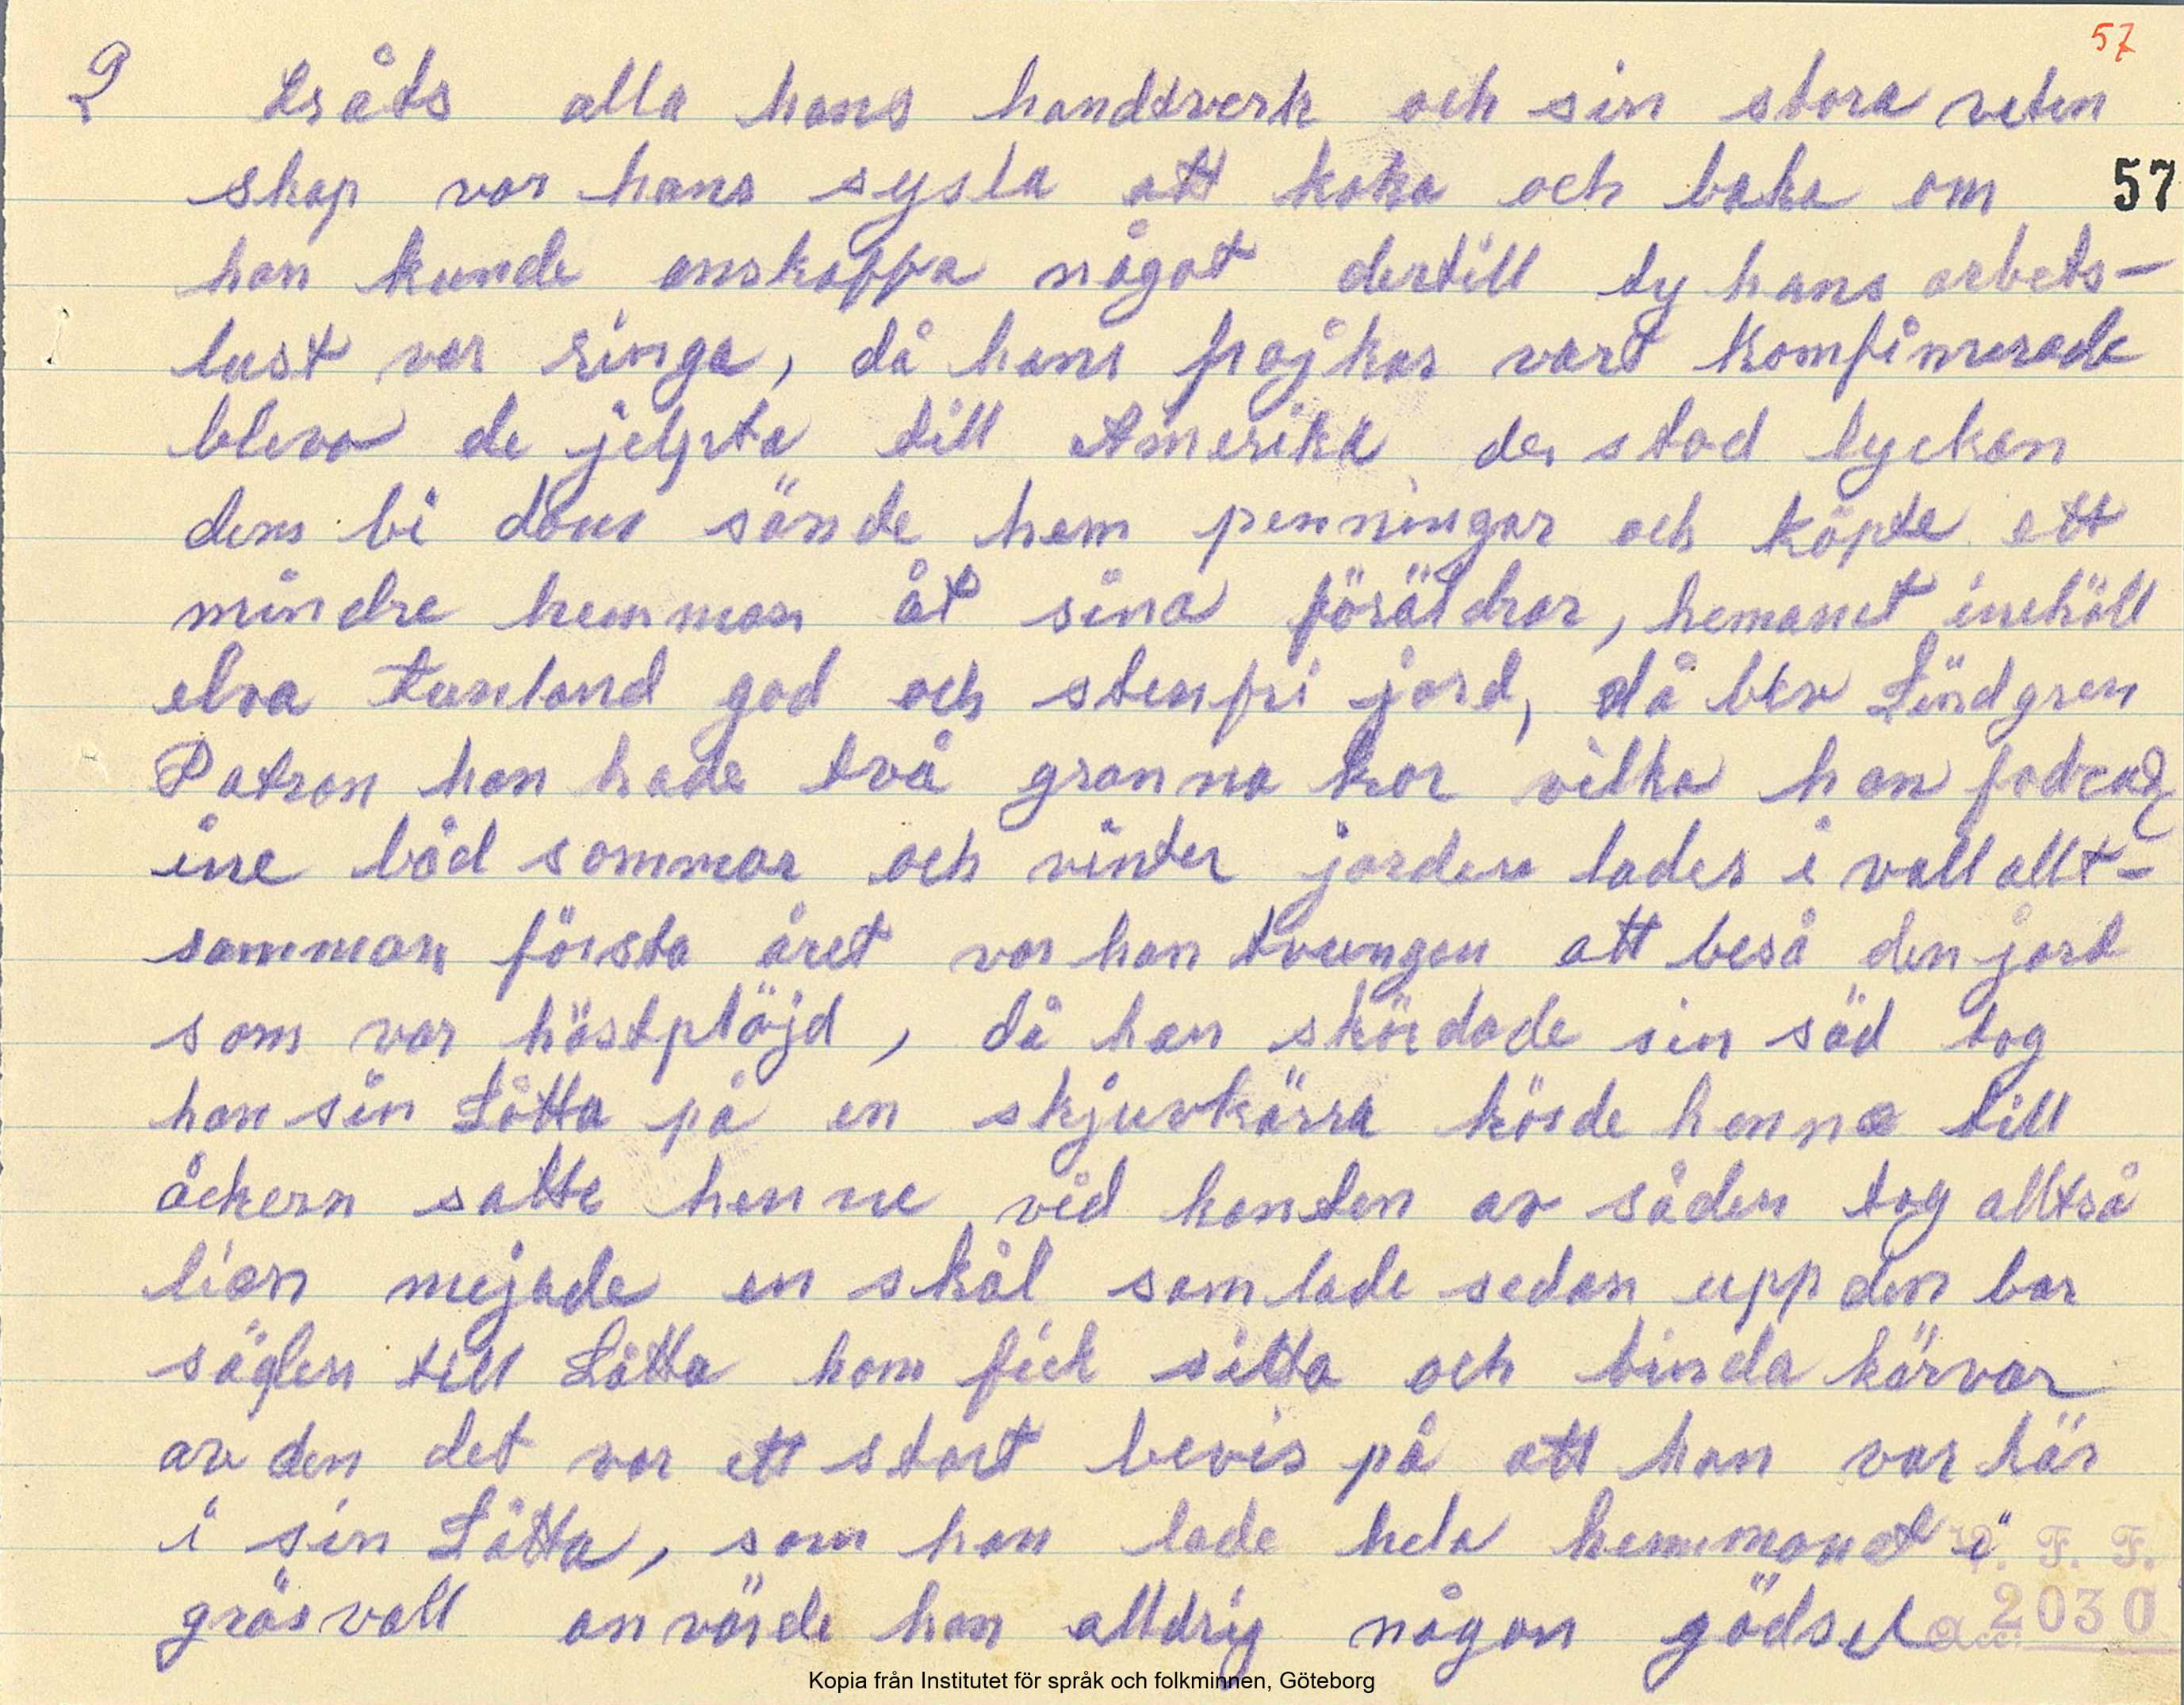 57
2 tråts alla hans handtverk och sin stora veten
skap var hans sysla att koka och baka om 57
han kunde anskaffa något dertill ty hans arbets-
lust var ringa, då hans pojkar vart komfimerade
blevo de jelpta till Amerika der stod lyckan
dem bi dom sände hem penningar och köpte ett
mindre hemman åt sina föräldrar, hemanet inehöll
elva tunland god och stenfri jord, då blev Lindgren
Patron han hade två granna kor vilka han fodrade
ine båd sommar och vinter jorden lades i vall allt-
samman första året var han tvungen att beså den jord
som var höstplöjd, då han skördade sin säd tog
han sin Låtta på en skjuvkärra körde henne till
åckern satte henne vid kanten av säden tog alltså
lian mejade en skål samlade sedan upp den bar
säden till Låtta hom fick sitta och binda kärvar
av den det var ett stort bevis på att han var kär
i sin Låtta, som han lade hela hemmanet i
gräsvall använde han alldrig någon gödsel
V. F. F.
acc. 2030
Kopia från Institutet för språk och folkminnen, Göteborg